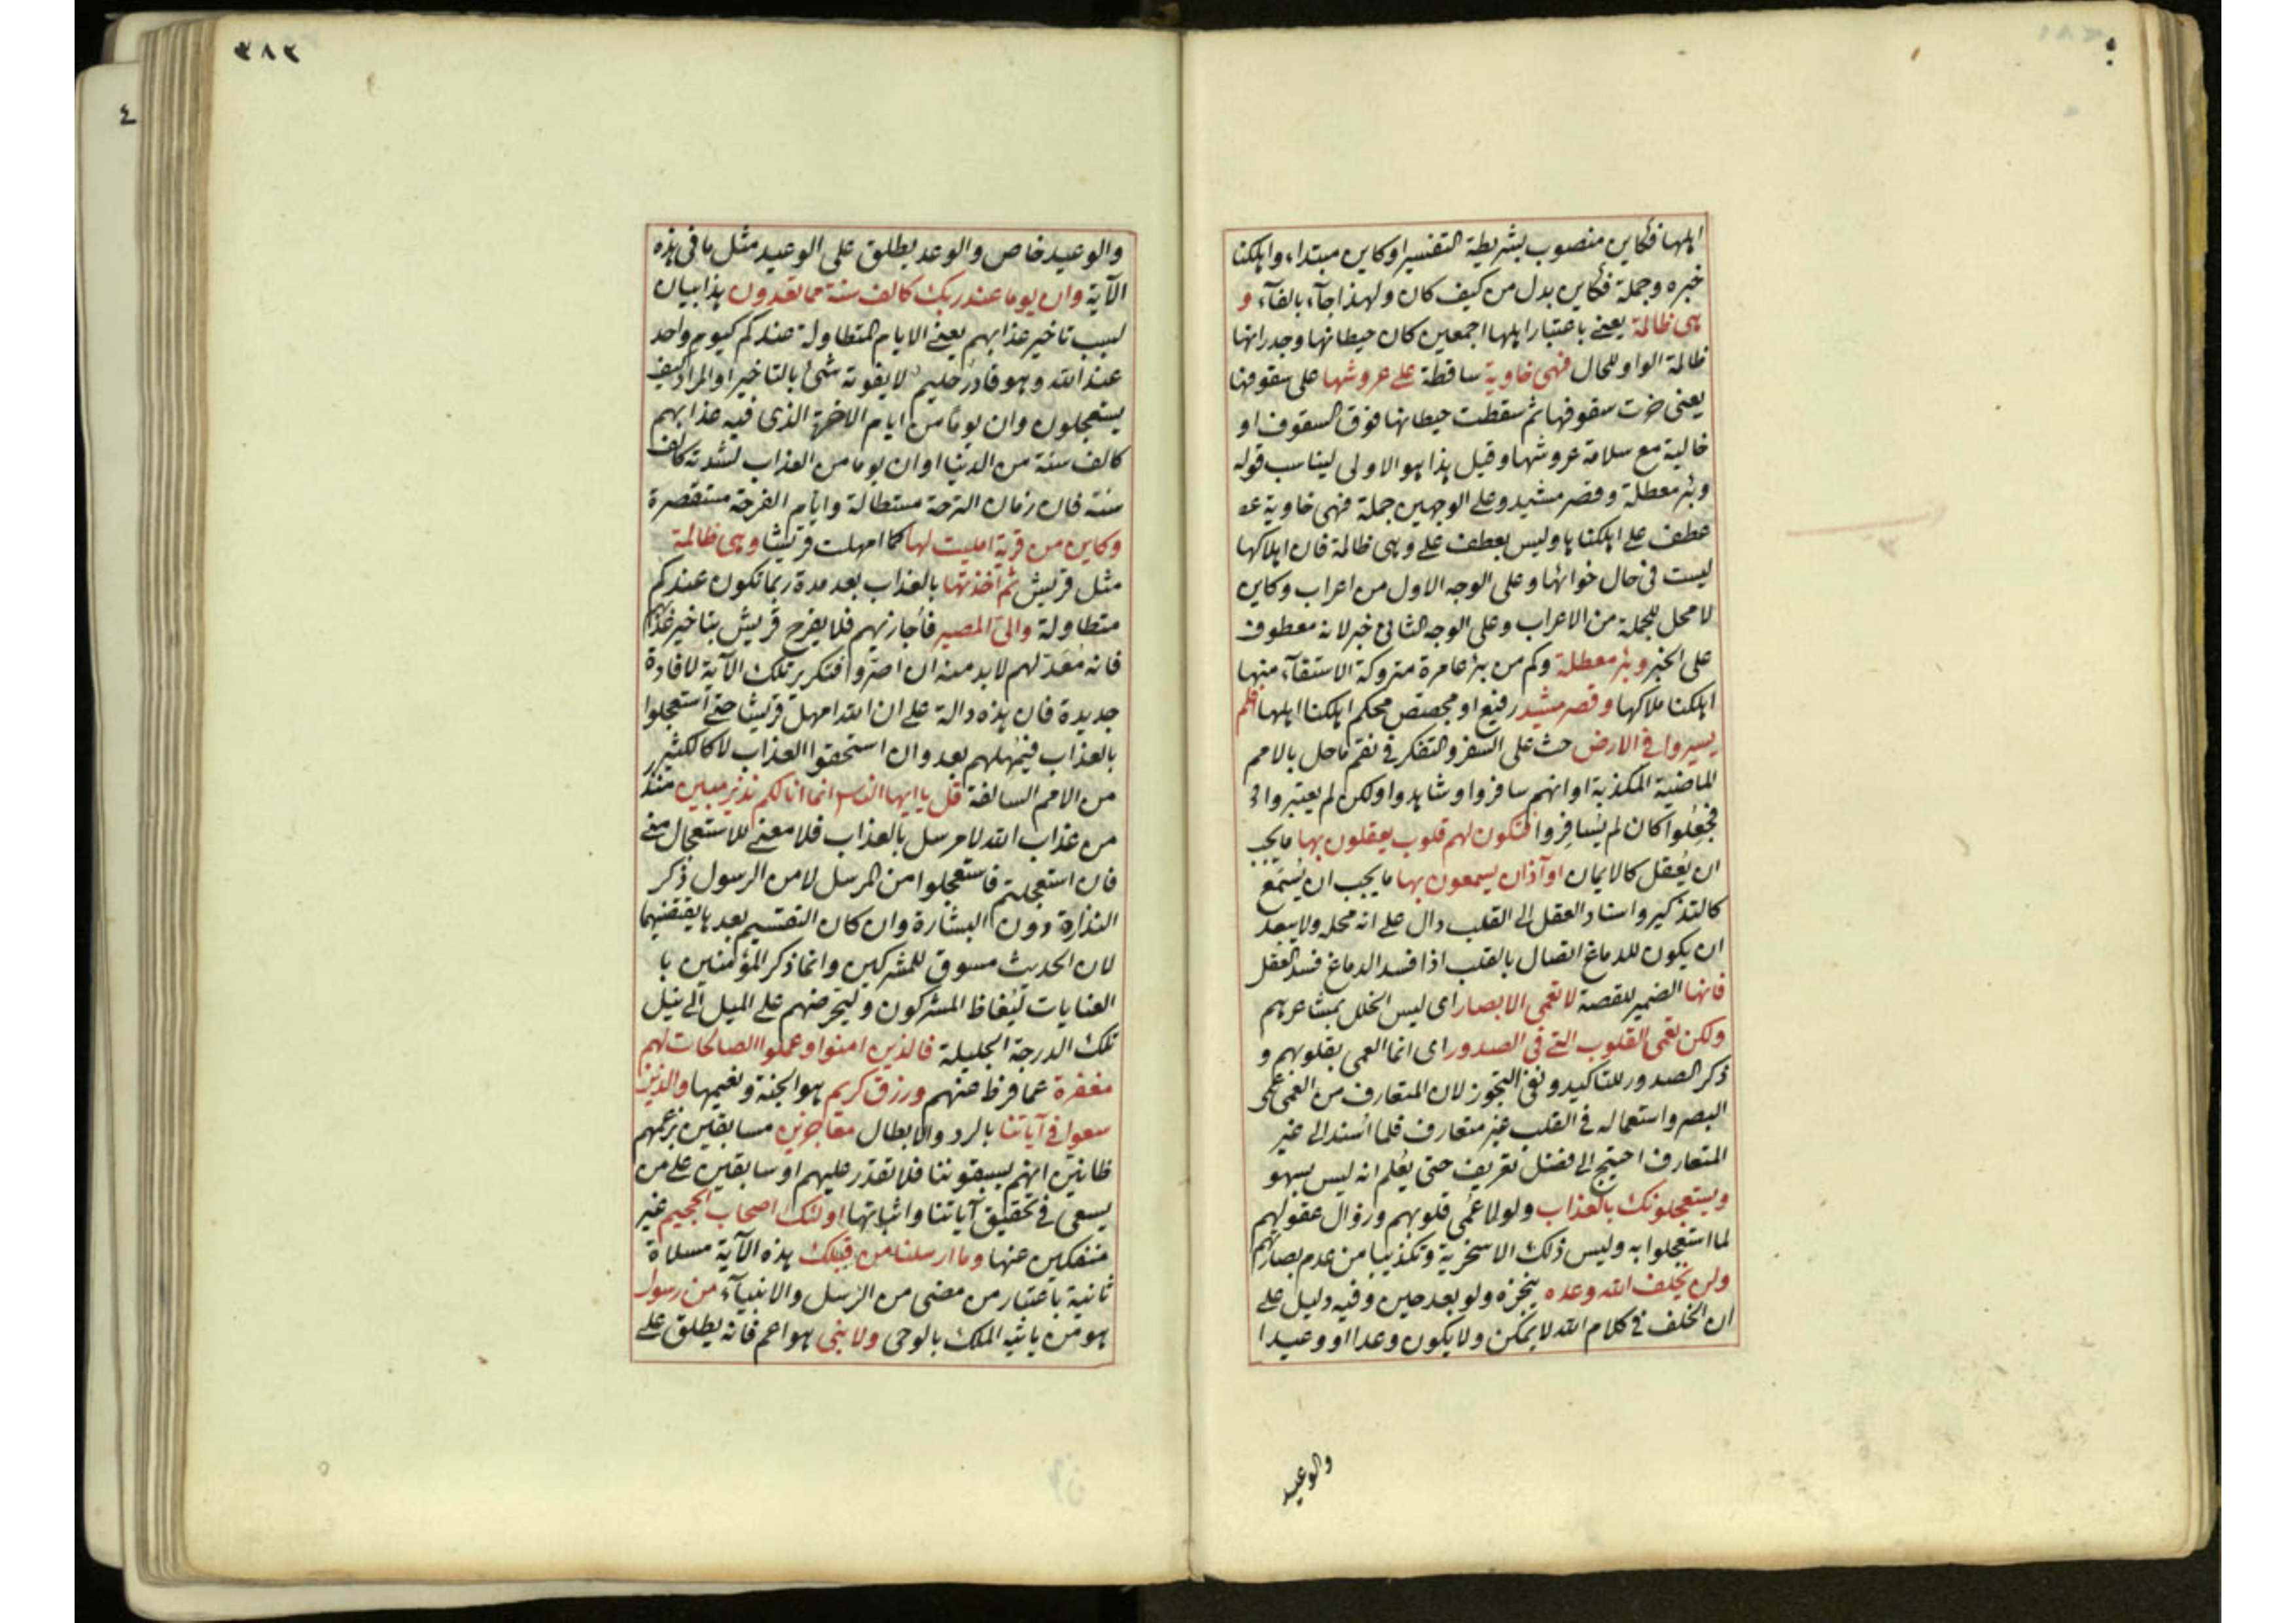 اهلها فكاين منصوب بشريطة التفسير او كاين مبتداء واهلكنا
خبره وجملة فكاين بدل من كيف كان ولهذا جآء بالفآء و
هى ظالمة يعنى باعتبار اهلها اجمعين كان حيطانها وجدرانها
ظالمة الواو للحال فهى خاوية ساقطة على عروشها على سقوفها
يعنى خرت سقوفها ثم سقطت حيطانها فوق السقوف او
خالية مع سلامة عروشها وقيل هذا هو الاولى ليناسب قوله
وبئر معطلة وقصر مشيد وعلى الوجهين جملة فهى خاوية عـ
عطف على اهلكناها وليس بعطف على وهى ظالمة فان اهلاكها
ليست فى حال خوائها وعلى الوجه الاول من اعراب وكاين
لا محل للجملة من الاعراب وعلى الوجه الثانى خبر لانه معطوف
على الخبر وبئر معطلة وكم من بئر عامرة متروكة الاستقآء منها
اهلكنا ملاكها وقصر مشيد رفيع او مجصص محكم اهلكنا اهلها افلم
يسيروا فى الارض حث على السفر والتفكر فى نقم ما حل بالامم
الماضية المكذبة او انهم سافروا وشاهدوا ولكن لم يعتبروا
فجعلوا كان لم يسافروا فتكون لهم قلوب يعقلون بها ما يجب
ان يعقل كالايمان او آذان يسمعون بها ما يجب ان يستمع
كالتذكير واسناد العقل الى القلب دال على انه محله ولا يبعد
ان يكون للدماغ اتصال بالقلب اذا فسد الدماغ فسد العقل
فانها الضمير للقصة لا تعمى الابصار اى ليس الخلل بمشاعرهم
ولكن تعمى القلوب التى فى الصدور اى انما العمى بقلوبهم و
ذكر الصدور للتاكيد ونفى التجوز لان المتعارف من العمى عمى
البصر واستعماله فى القلب غير متعارف فلما اسند الى غير
المتعارف احتيج الى فضل تعريف حتى يعلم انه ليس بسهو
ويستعجلونك بالعذاب ولولا عمى قلوبهم وزوال عقولهم
لما استعجلوا به وليس ذلك الا سخرية وتكذيبا من عدم بصارتهم
ولن يخلف الله وعده ينجزه ولو بعد حين وفيه دليل على
ان الخلف فى كلام الله لا يمكن ولا يكون وعدا او وعيدا
والوعيد
٣٨٢
٤
والوعيد خاص والوعد يطلق على الوعيد مثل ما فى هذه
الآية وان يوما عند ربك كالف سنة مما تعدون هذا بيان
لسبب تاخير عذابهم يعنى الايام المتطاولة عندكم كيوم واحد
عند الله وهو قادر حليم لا يفوته شئ بالتاخير او المراد كيف
يستعجلون وان يوما من ايام الاخرة الذى فيه عذابهم
كالف سنة من الدنيا او ان يوما من العذاب لشدته كالف
سنة فان زمان الترحة مستطالة وايام الفرحة مستقصرة
وكاين من قرية امليت لها كما امهلت قريشا وهى ظالمة
مثل قريش ثم اخذتها بالعذاب بعد مدة ربما تكون عندكم
متطاولة والىّ المصير فأجازيهم فلا يفرح قريش بتاخير عذابهم
فانه مُعَدّ لهم لابد منه ان اصروا فتكرير تلك الآية لافادة
جديدة فان هذه دالة على ان الله امهل قريشا حتى استعجلوا
بالعذاب فيُمهلهم بعد وان استحقوا العذاب لا كالكثير
من الامم السالفة قل يا ايها الناس انما انا لكم نذير مبين منذ
من عذاب الله لا مرسل بالعذاب فلا معنى للاستعجال منى
فان استعجلتم فاستعجلوا من المرسل لا من الرسول ذكر
النذارة دون البشارة وان كان التقسيم بعدها يقتضيهما
لان الحديث مسوق للمشركين وانما ذكر المؤمنين با
العنايات ليُغاظ المشركون وليحرضهم على الميل الى نيل
تلك الدرجة الجليلة فالذين امنوا وعملوا الصالحات لهم
مغفرة عما فرط منهم ورزق كريم هو الجنة ونعيمها والذين
سعوا فى آياتنا بالرد والابطال معاجزين مسابقين بزعمهم
ظانين انهم يسبقوننا فلا نقدر عليهم او سابقين على من
يسعى فى تحقيق آياتنا واثباتها اولئك اصحاب الجحيم غير
منفكين عنها وما ارسلنا من قبلك هذه الآية مسلاة
ثانية باعتبار من مضى من الرسل والانبيآء من رسول
هو من ياتيه الملك بالوحى ولا نبى هو اعم فانه يطلق على